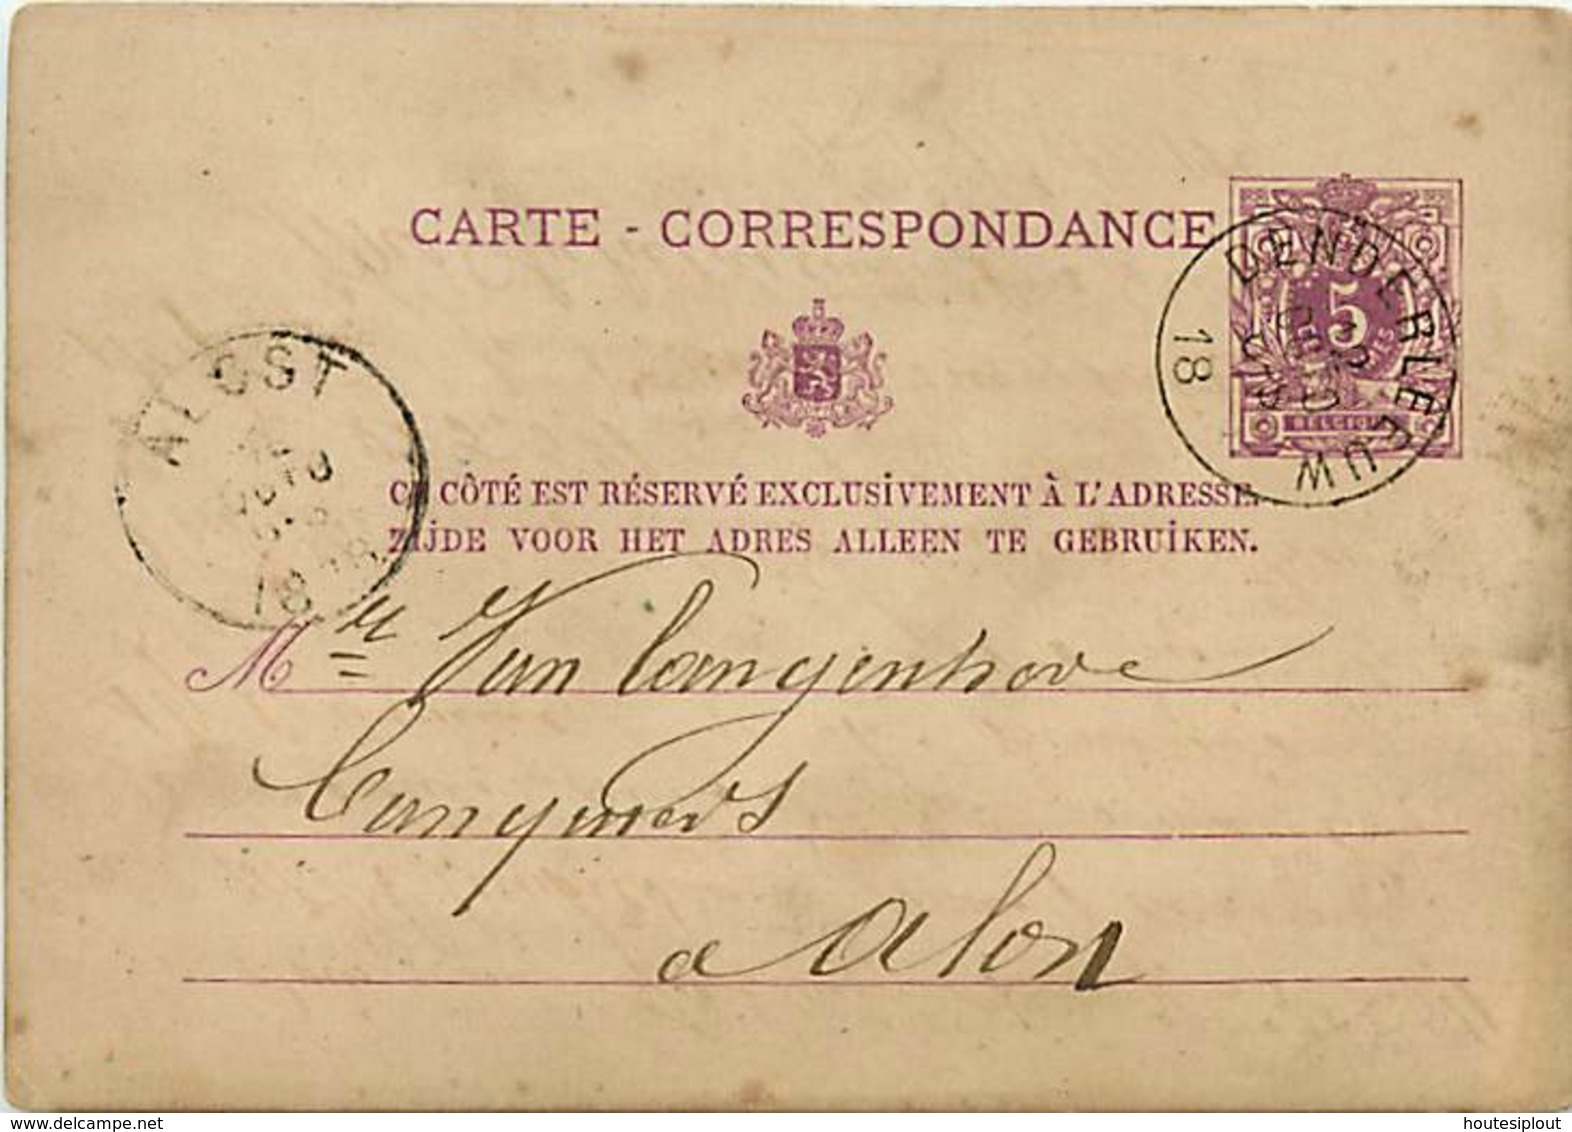 CARTE - CORRESPONDANCE
5
BELGIQUE
DENDERLEEUW
18
ALOST
18
CE CÔTÉ EST RÉSERVÉ EXCLUSIVEMENT À L'ADRESSE.
ZIJDE VOOR HET ADRES ALLEEN TE GEBRUIKEN.
M Van Langenhove
a alost
delcampe.net
houtesiplout